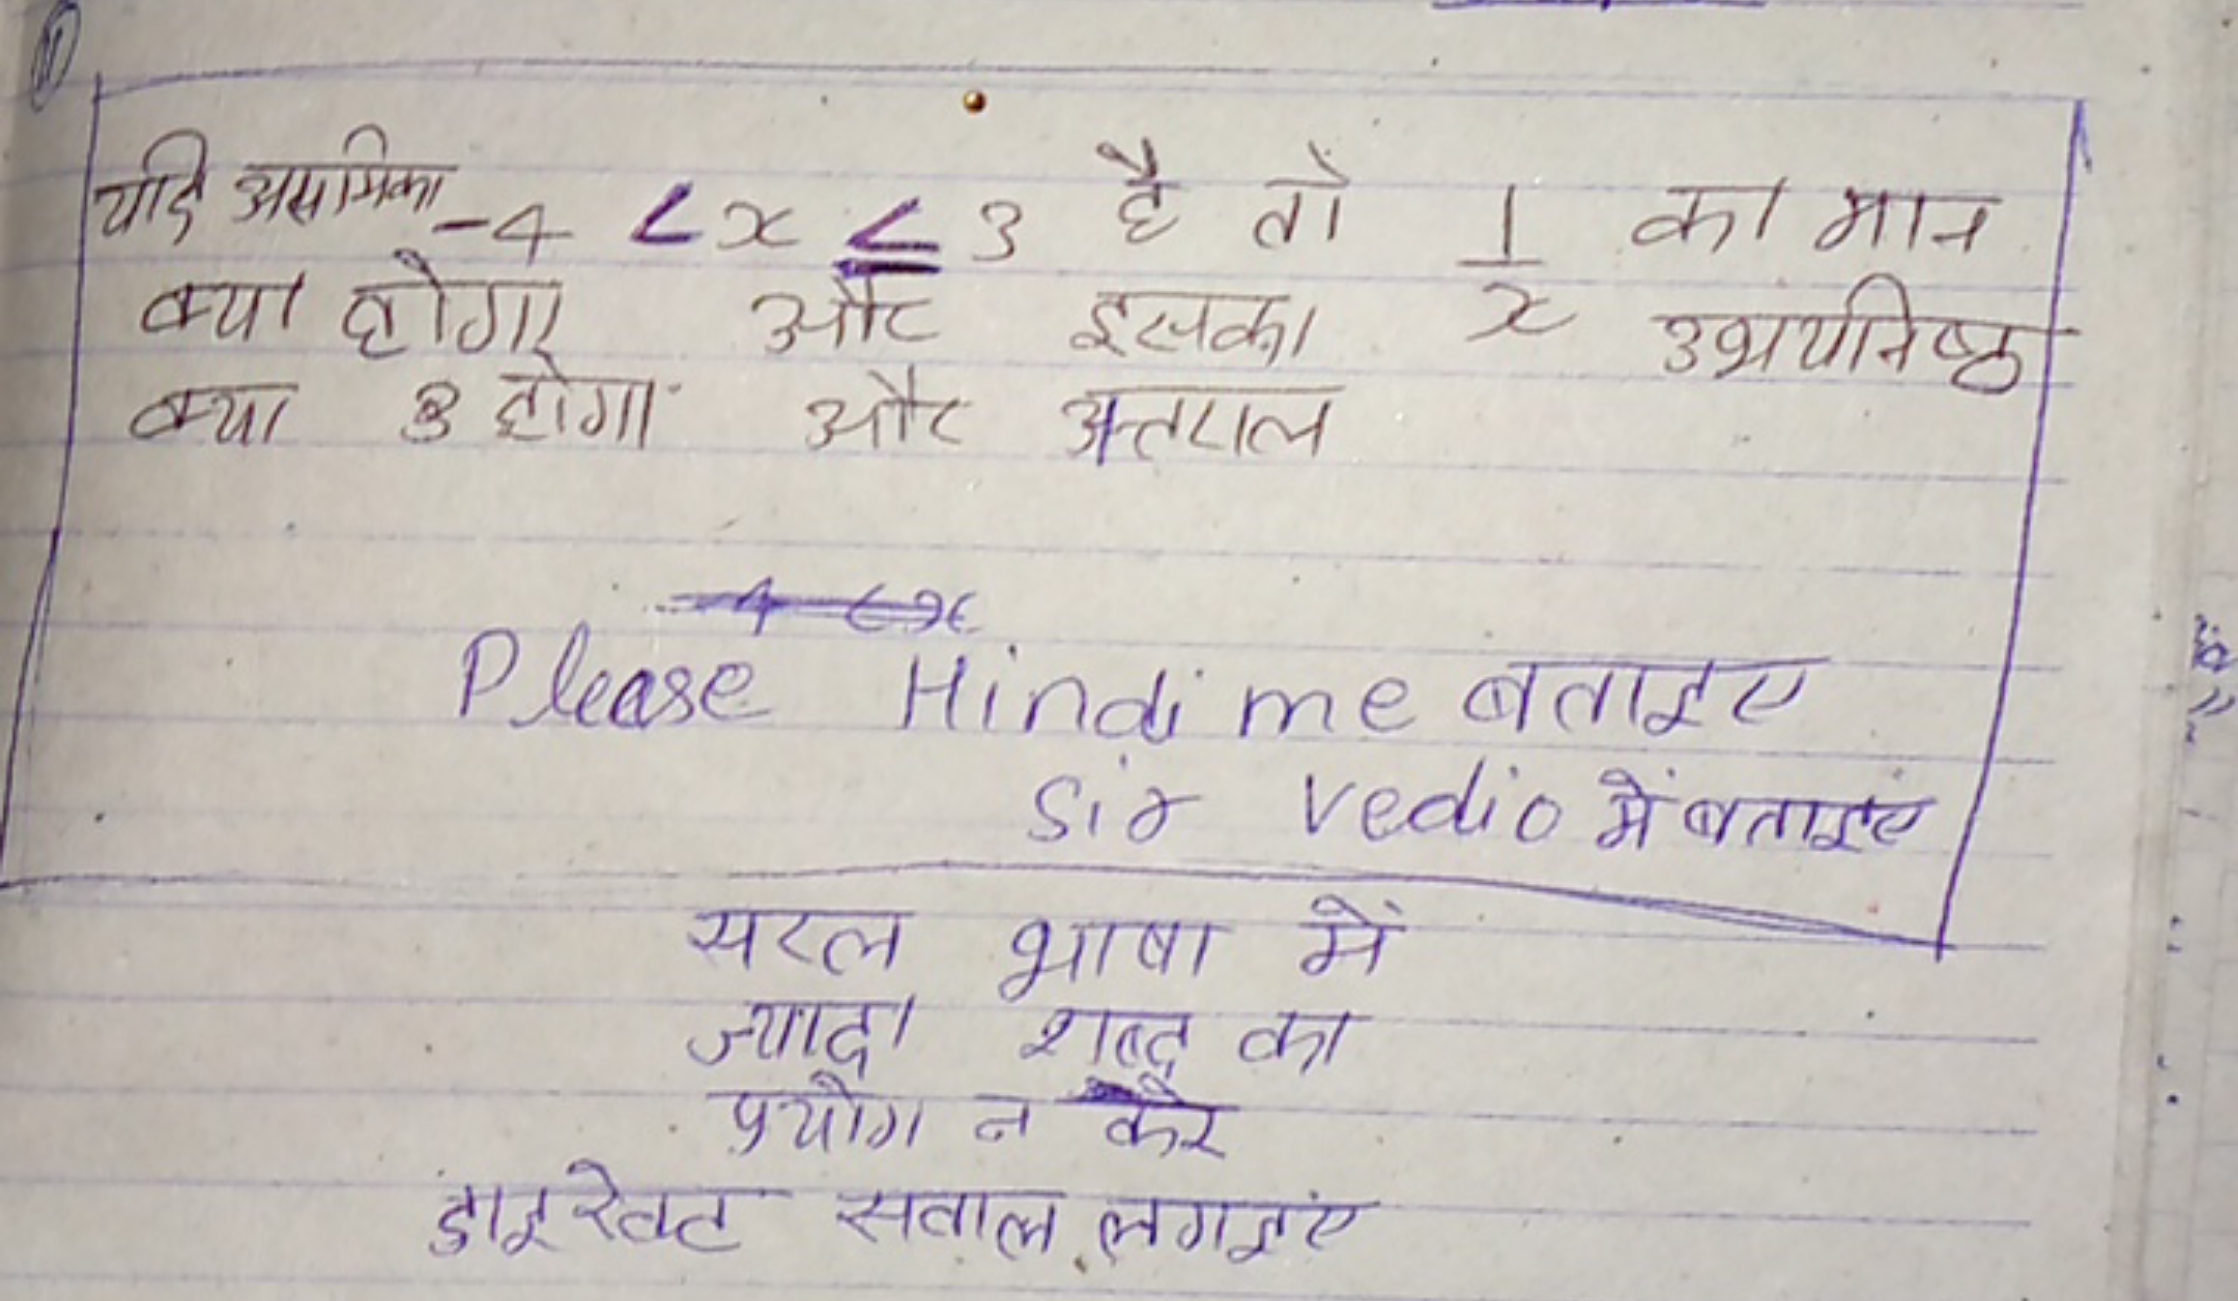 यदि असमिका -4 < x ≤ 3 है तो 1/x का मान
क्या होगा और इसका उभयनिष्ठ
क्या होगा और अन्तराल
Please Hindi me बताइए
Sir vedio में बताइए
सरल भाषा में
ज्यादा शब्द का
प्रयोग न करे
डाइरेक्ट सवाल लगाइए